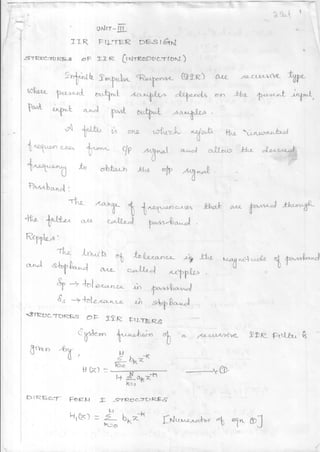 UNIT-III
IIR FILTER DESIGN
STRUCTURES OF IIR [INTRODUCTION]
Infinite Impulse Response (IIR) are recursive type
where present output samples depends on the present input,
past input and past output samples.
A filter is one which rejects the "unwanted
frequencies from i/p signal and allow the desired
frequency to obtain the o/p signal
Passband:
The range of frequencies that are passed through
the filter are called pass-band.
Ripples:
The limits of tolerance in the magnitude of passband
and stopband are called ripples.
δp → tolerance in passband
δs → tolerance in stopband.
STRUCTURES OF IIR FILTERS
System function of a recursive IIR Filter is
given by
H(z) = M Σ k=0 bk z^-k / 1+ Σ k=1 ak z^-k → ①
DIRECT FORM I STRUCTURES
H1(z) = M Σ k=0 bk z^-k [Numerator of eqn ①]